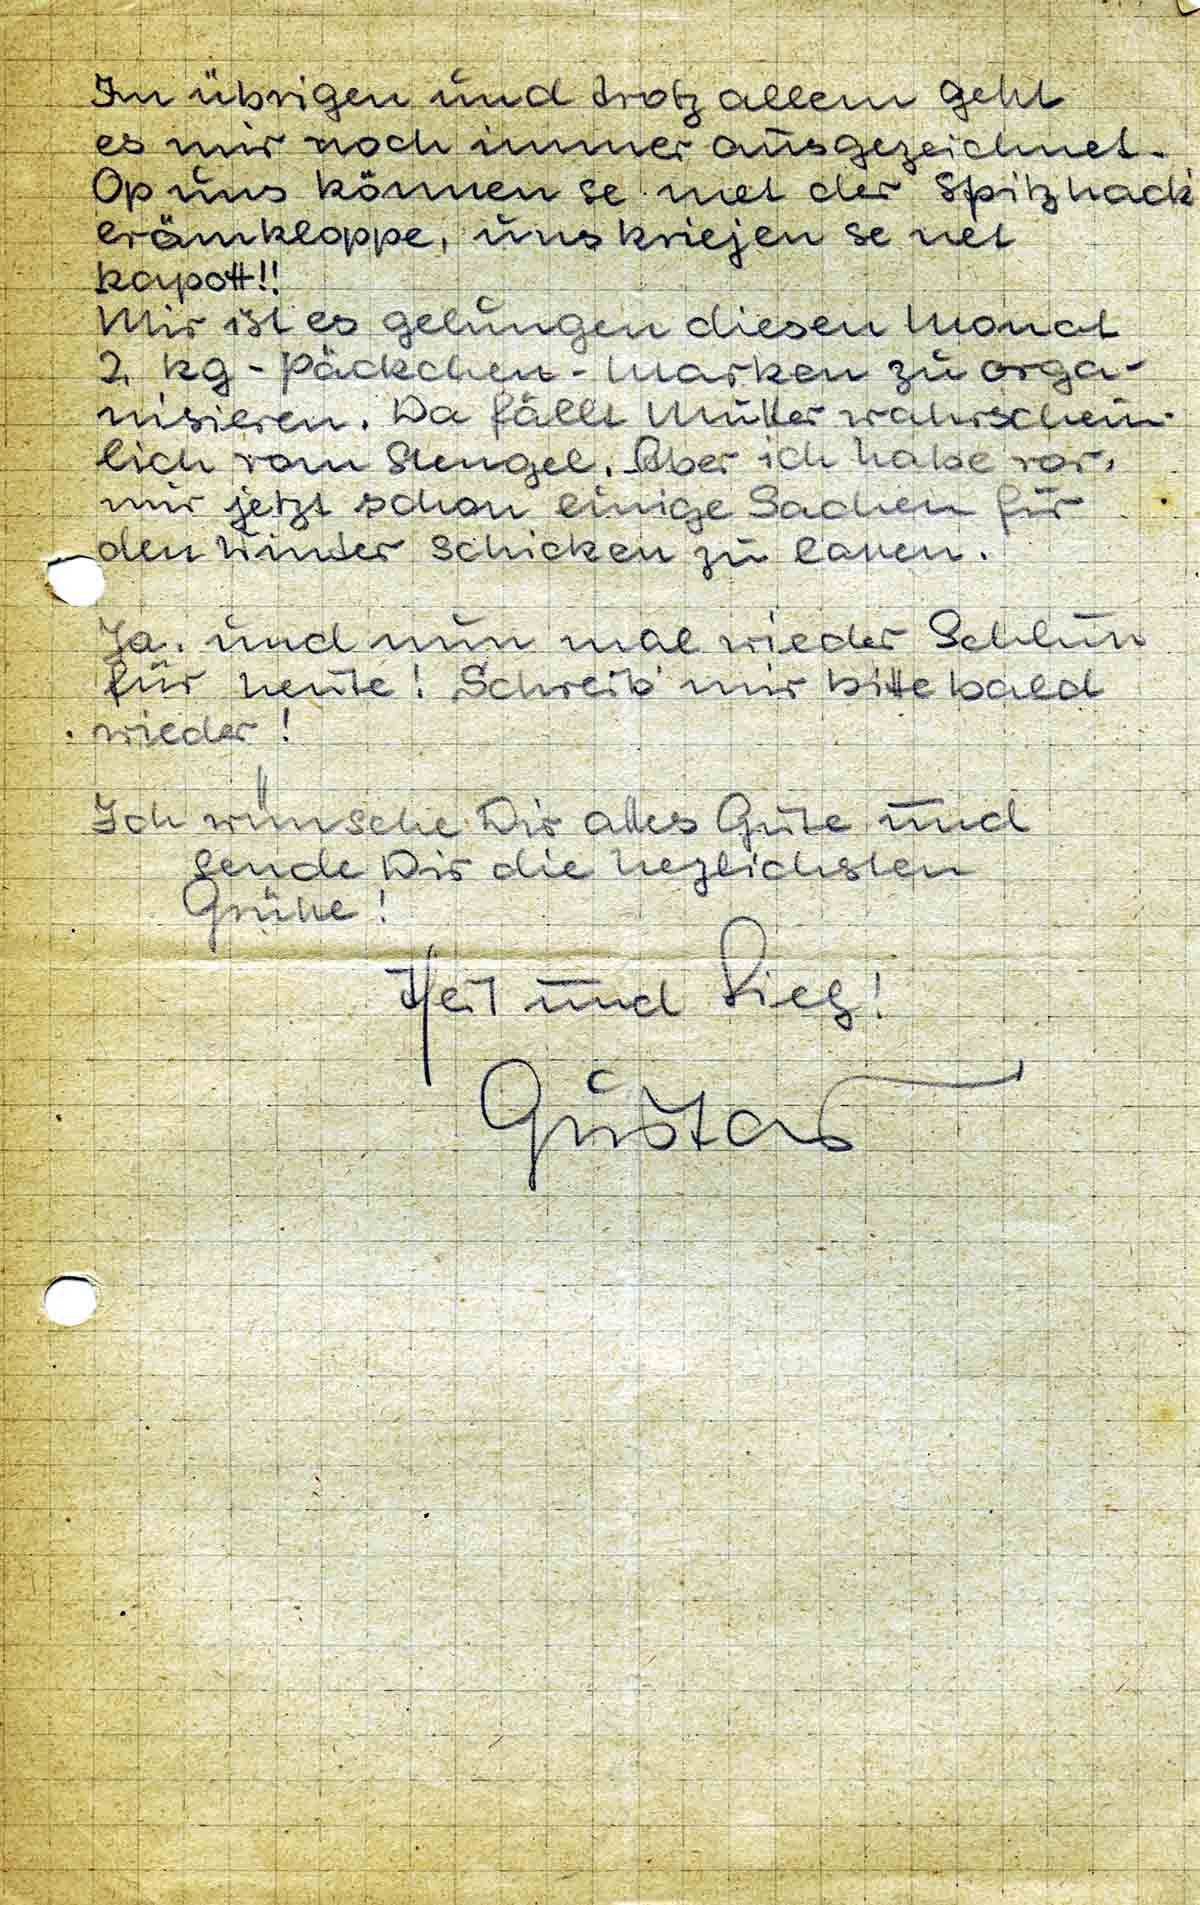 Im übrigen und trotz allem geht
es mir noch immer ausgezeichnet.
Op uns können se met der Spitzhack
erömkloppe, uns kriejen se net
kapott!!
Mir ist es gelungen diesen Monat
2 kg - Päckchen - Marken zu orga-
nisieren. Da fällt Mutter wahrschein-
lich vom Stengel. Aber ich habe vor,
mir jetzt schon einige Sachen für
den Winter schicken zu lassen.
Ja, und nun mal wieder Schluß
für heute! Schreib' mir bitte bald
wieder!
Ich wünsche Dir alles Gute und
sende Dir die hezlichsten
Grüße!
Heil und Sieg!
Gustav